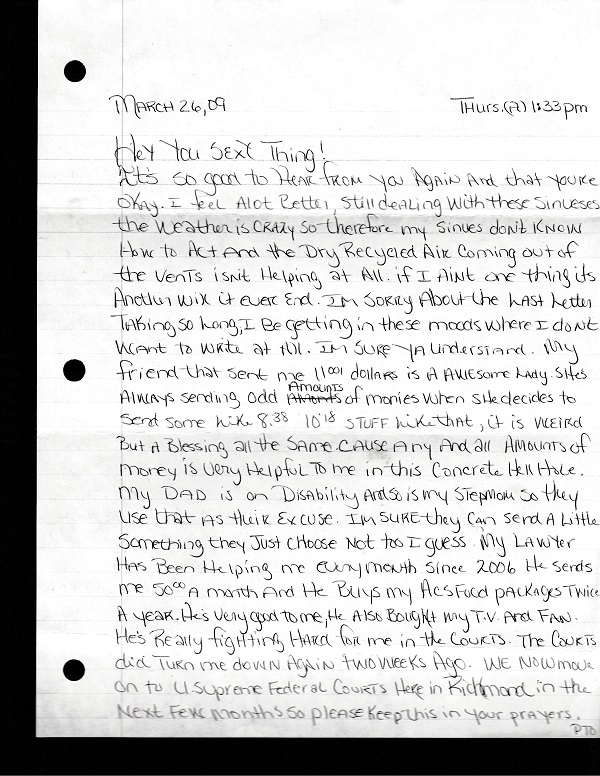 MARCH 26, 09 Thurs. (A) 1:33pm
Hey You Sexy Thing!
It's so good to Hear from you Again And that you're
okay. I feel Alot Better, still dealing With these Sinueses
the Weather is CRAZY so therefore my sinues don't KNOW
How to Act And the Dry Recycled Air Coming out of
the vents isnt Helping at All. if I Aint one thing its
Another will it ever End. I'm Sorry About the Last Letter
Taking so Long, I Be getting in these moods where I don't
Want to Write at All. I'm SURE YA understand. My
friend that sent me 11.001 dollars is A AWESome Lady. SHe's
Always sending odd Amounts of monies when she decides to
send some Like 8.38 10.18 STUFF Like that, it is WEIRD
But A Blessing all the SAME CAUSE Any And all AMOUNTS of
money is Very Helpful To me in this Concrete Hell Hole.
My DAD is on Disability And so is my Stepmom so they
Use that As their Excuse. I'm SURE they Can send A Little
Something they Just Choose Not too I guess. My Lawyer
HAS Been Helping me every month since 2006 He sends
me 50.00 A month And He Buys my ACS Food packages Twice
A year. He's Very good to me, He Also Bought my T.V. And FAN.
He's Really fighting Hard for me in the COURTS. The COURTS
did Turn me down Again two Weeks Ago. WE Now move
on to U.S supreme Federal Courts Here in Richmond in the
Next Few months so please Keep this in your prayers.
PTO